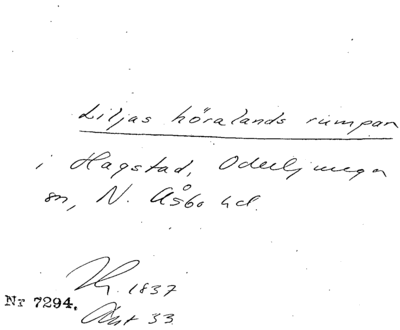 Liljas höralands rumpan
i Hagstad, Oderljunga
sn, N. Åsbo hd.
Hs. 1837
Nr 7294.
Ant 33.